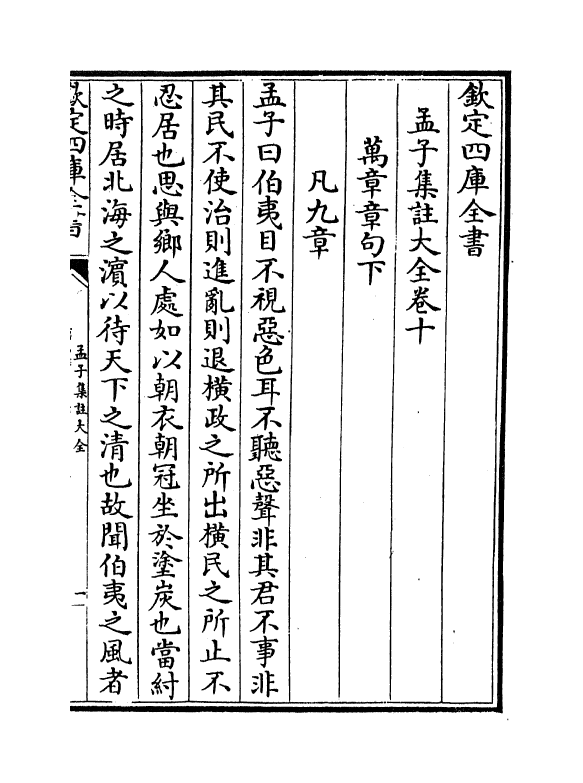 欽定四庫全書
孟子集註大全卷十
萬章章句下
凡九章
孟子曰伯夷目不視惡色耳不聽惡聲非其君不事非
其民不使治則進亂則退橫政之所出橫民之所止不
忍居也思與鄉人處如以朝衣朝冠坐於塗炭也當紂
之時居北海之濵以待天下之清也故聞伯夷之風者
欽定四庫全書
孟子集註大全